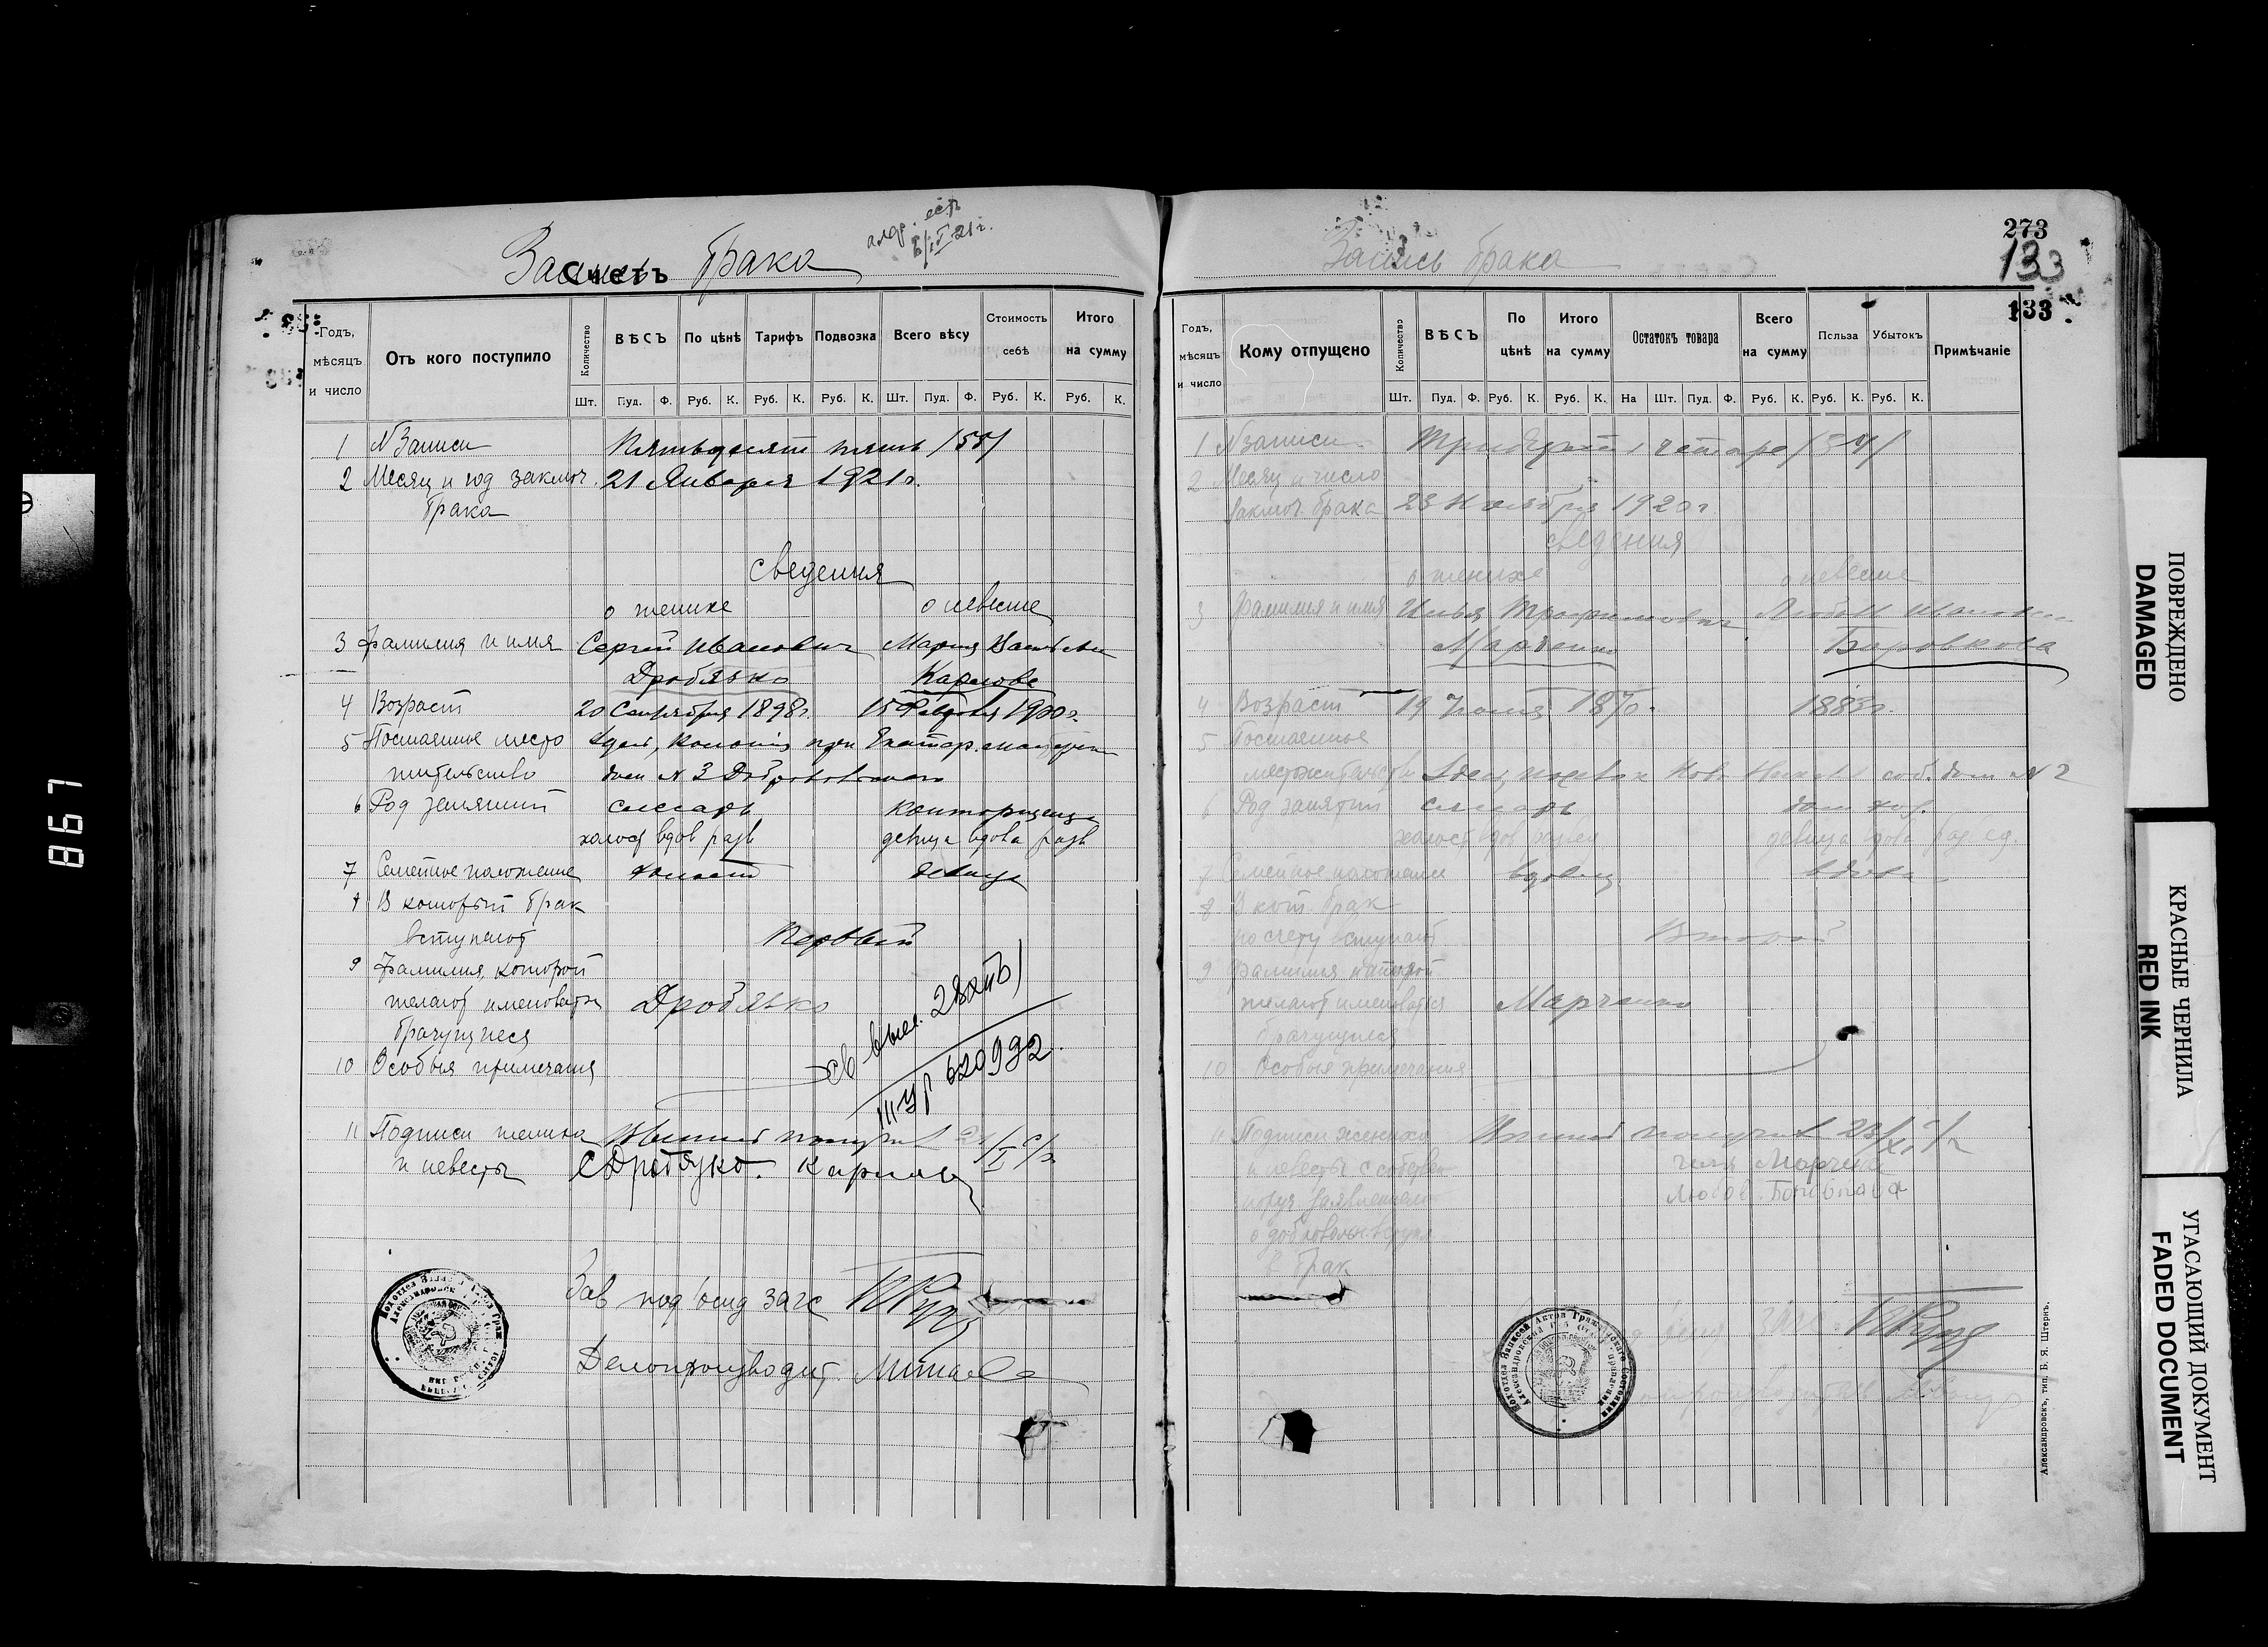 Запись брака
Счетъ
21 г.
Годъ, мѣсяцъ и число
Отъ кого поступило
Количество
ВѢСЪ
По цѣнѣ
Тарифъ
Подвозка
Всего вѣсу
Стоимость себѣ
Итого на сумму
Шт. Пуд. Ф. Руб. К. Руб. К. Руб. К. Шт. Пуд. Ф. Руб. К. Руб. К.
1 N Записи Пятьдесят пять /55/
2 Месяц и год заключ. 21 Января 1921 г.
брака
Сведения
о женихе о невесте
3 Фамилия и имя Сергей Иванович Мария
Дробязко Карлова
4 Возраст 20 Сентября 1898 г. 15 Февраля 1900 г.
5 Постоянное место Здесь, Колония при Екатер.
жительство дом N 3
6 Род занятий слесарь конторщица
холост вдов разв девица вдова разв
7 Семейное положение холост девица
8 В который брак
вступают Первый
9 Фамилия, которой
желают именоваться Дробязко
брачущиеся
10 Особыя примечания
св. выд.
III УР 620992
11 Подписи жениха
и невесты СДробязко.
Зав под'отд загс
Делопроизводит.
Запись брака
273
133
133
Годъ, мѣсяцъ и число
Кому отпущено
Количество
ВѢСЪ
По цѣнѣ
Итого на сумму
Остатокъ товара
Всего на сумму
Польза
Убытокъ
Примѣчаніе
Шт. Пуд. Ф. Руб. К. Руб. К. На Шт. Пуд. Ф. Руб. К. Руб. К. Руб. К.
1 N записи Тридцать четыре /34/
2 Месяц и число
заключ. брака 23 Ноября 1920 г
сведения
о женихе о невесте
3 Фамилия и имя Илья Трофимович Любовь Ивановна
Марченко Боровкова
4 Возраст 19 1870 г. 1883 г.
5 Постоянное
местожительство Здесь соб. дом N 2
6 Род занятий слесарь дом. хоз.
холост вдов развед девица вдова развед.
7 Семейное положение вдовец вдова
8 В кот. брак
по счету вступают Второй
9 Фамилия которой
желают именоваться Марченко
брачущиеся
10 Особые примечания
11 Подписи жениха
и невесты с собствен
Марченко
Любов
в брак
Подотдел Записей Актов Гражданского Состояния
Александровскъ, тип. Б. Я. Штернъ.
867
ПОВРЕЖДЕНО
DAMAGED
КРАСНЫЕ ЧЕРНИЛА
RED INK
УГАСАЮЩИЙ ДОКУМЕНТ
FADED DOCUMENT